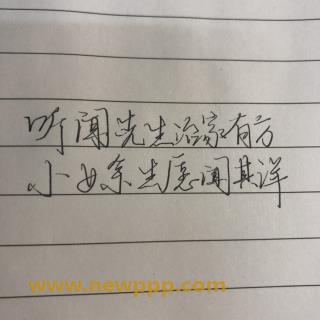 听闻先生治家有方
小女余生愿闻其详
www.newppp.com